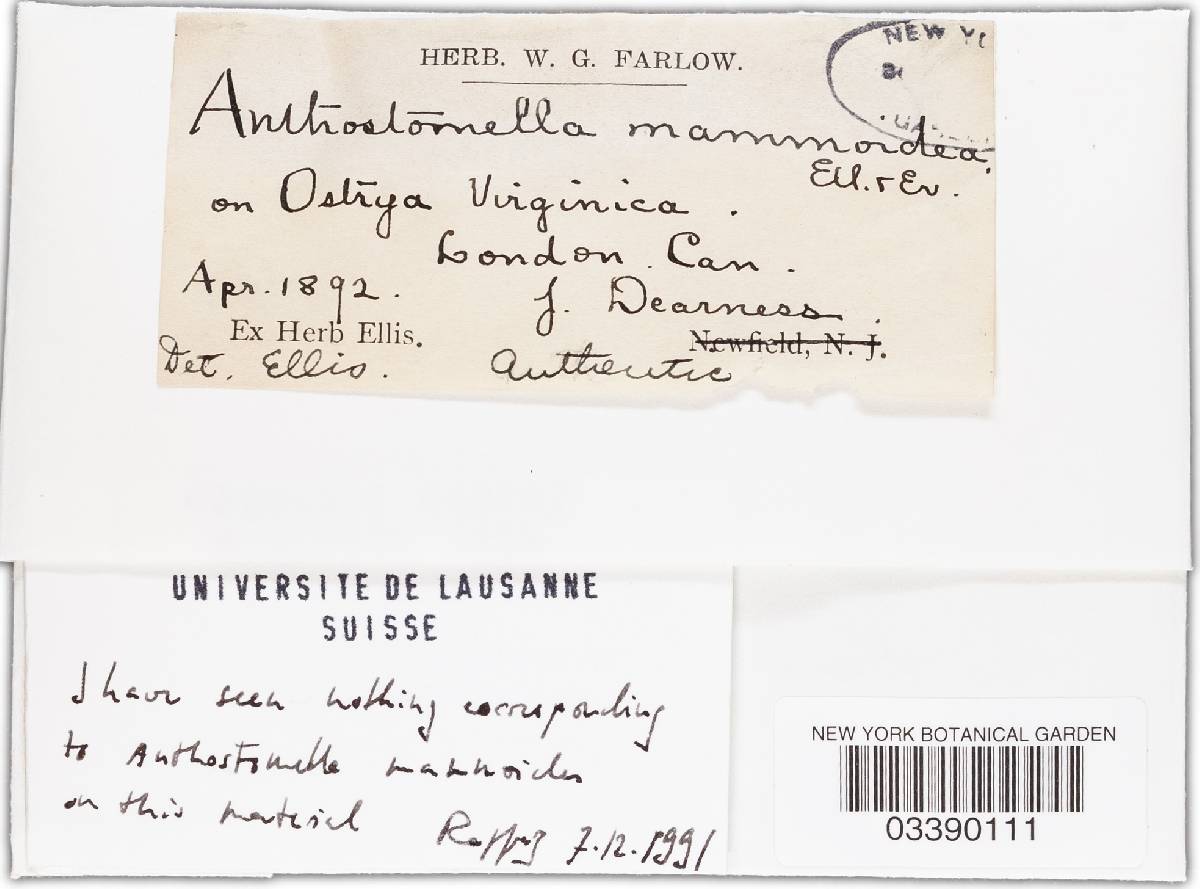 HERB. W. G. FARLOW.
NEW YO
Anthostomella mammoidea
Ell. & Ev.
on Ostrya Virginica.
London. Can.
Apr. 1892.
J. Dearness.
Ex Herb Ellis.
Newfield, N. J.
Det. Ellis.
Authentic
UNIVERSITE DE LAUSANNE
SUISSE
I have seen nothing corresponding
to Anthostomella mammoides
on this material
Rappaz 7.12.1991
NEW YORK BOTANICAL GARDEN
03390111